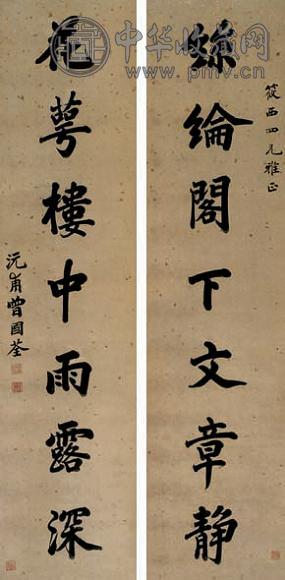 中华收藏网
www.pmv.cn
筱西四兄雅正
絲綸閣下文章靜
花萼樓中雨露深
沅甫曾國荃